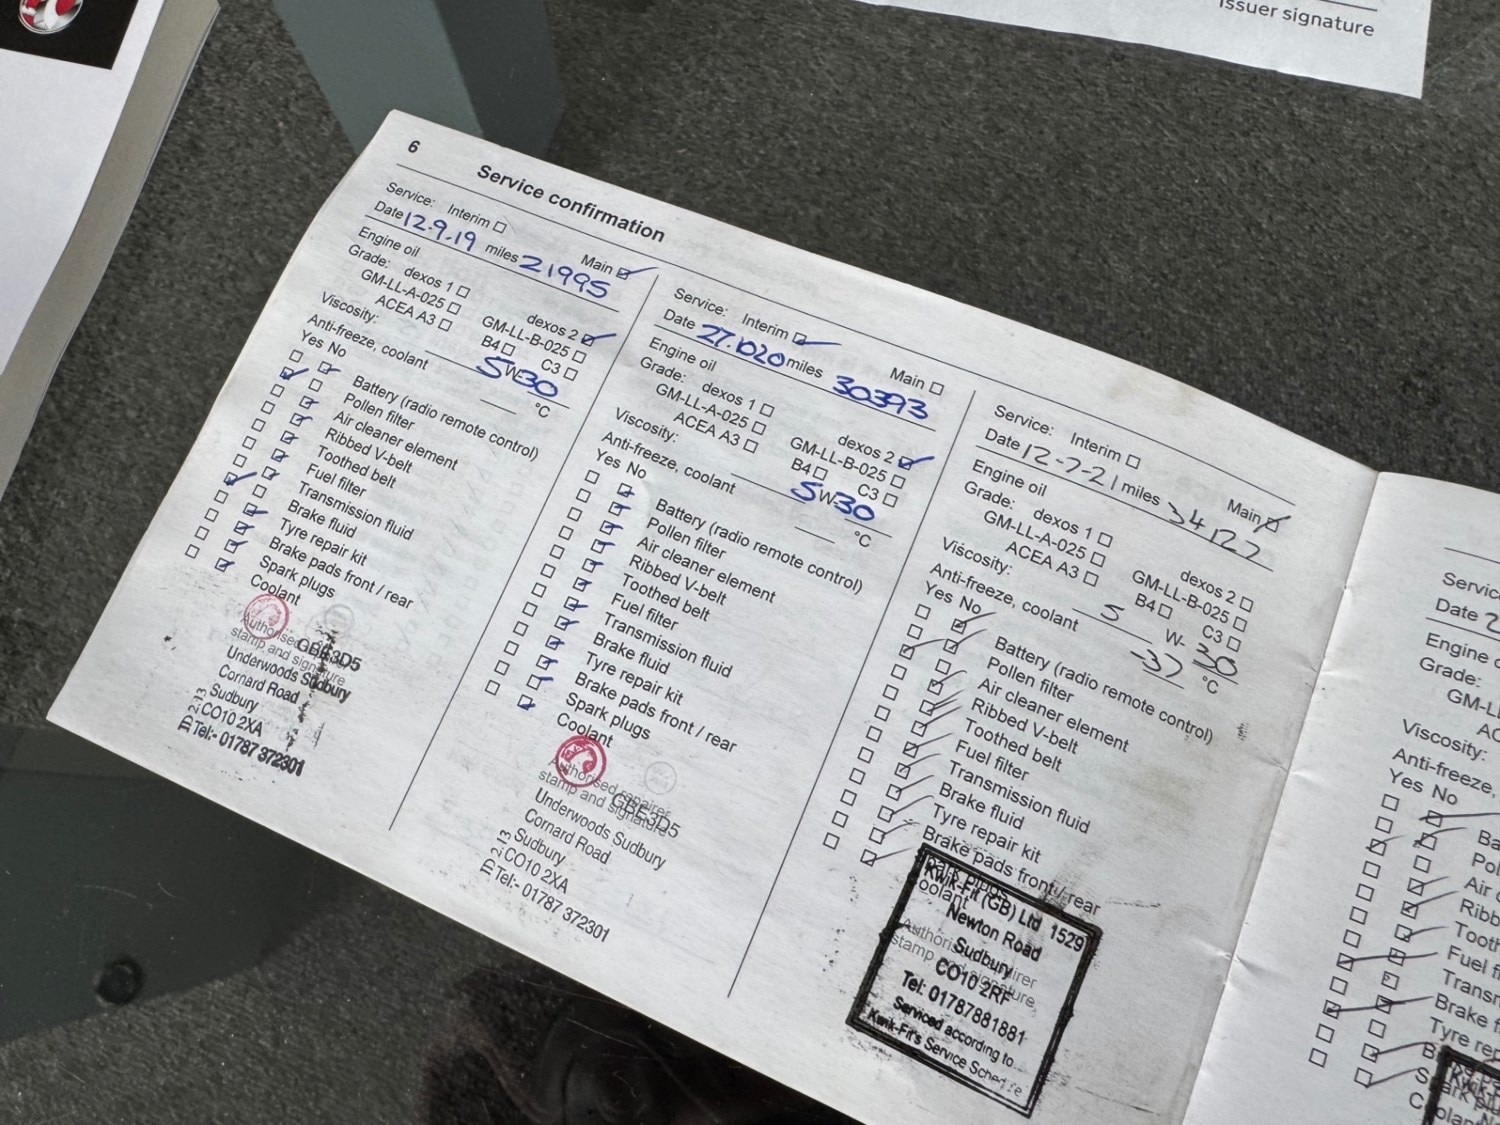 Issuer signature
6
Service confirmation
Service: Interim Main
Date 12.9.19 miles 21995
Engine oil
Grade: dexos 1 dexos 2
GM-LL-A-025 GM-LL-B-025
ACEA A3 B4 C3
Viscosity: 5 W- 30
Anti-freeze, coolant °C
Yes No
Battery (radio remote control)
Pollen filter
Air cleaner element
Ribbed V-belt
Toothed belt
Fuel filter
Transmission fluid
Brake fluid
Tyre repair kit
Brake pads front / rear
Spark plugs
Coolant
Authorised
stamp and signature
GBE3D5
Underwoods Sudbury
Cornard Road
Sudbury
CO10 2XA
Tel:- 01787 372301
Service: Interim Main
Date 27.1020 miles 30393
Engine oil
Grade: dexos 1 dexos 2
GM-LL-A-025 GM-LL-B-025
ACEA A3 B4 C3
Viscosity: 5 W- 30
Anti-freeze, coolant °C
Yes No
Battery (radio remote control)
Pollen filter
Air cleaner element
Ribbed V-belt
Toothed belt
Fuel filter
Transmission fluid
Brake fluid
Tyre repair kit
Brake pads front / rear
Spark plugs
Coolant
Authorised repairer
stamp and signature
GBE3D5
Underwoods Sudbury
Cornard Road
Sudbury
CO10 2XA
Tel:- 01787 372301
Service: Interim Main
Date 12-7-21 miles 34122
Engine oil
Grade: dexos 1 dexos 2
GM-LL-A-025 GM-LL-B-025
ACEA A3 B4 C3
Viscosity: 5 W- 30
Anti-freeze, coolant -37 °C
Yes No
Battery (radio remote control)
Pollen filter
Air cleaner element
Ribbed V-belt
Toothed belt
Fuel filter
Transmission fluid
Brake fluid
Tyre repair kit
Brake pads front / rear
plugs
Coolant
stamp and signature
Kwik-Fit (GB) Ltd 1529
Newton Road
Sudbury
CO10 2RF
Tel: 01787881881
Serviced according to
Kwik-Fit's Service Schedule
Servic
Date 2
Engine o
Grade:
GM-L
AC
Viscosity:
Anti-freeze,
Yes No
Ba
Pol
Air c
Ribb
Tooth
Fuel f
Transm
Brake f
Tyre rep
B
Spark plu
Coolan